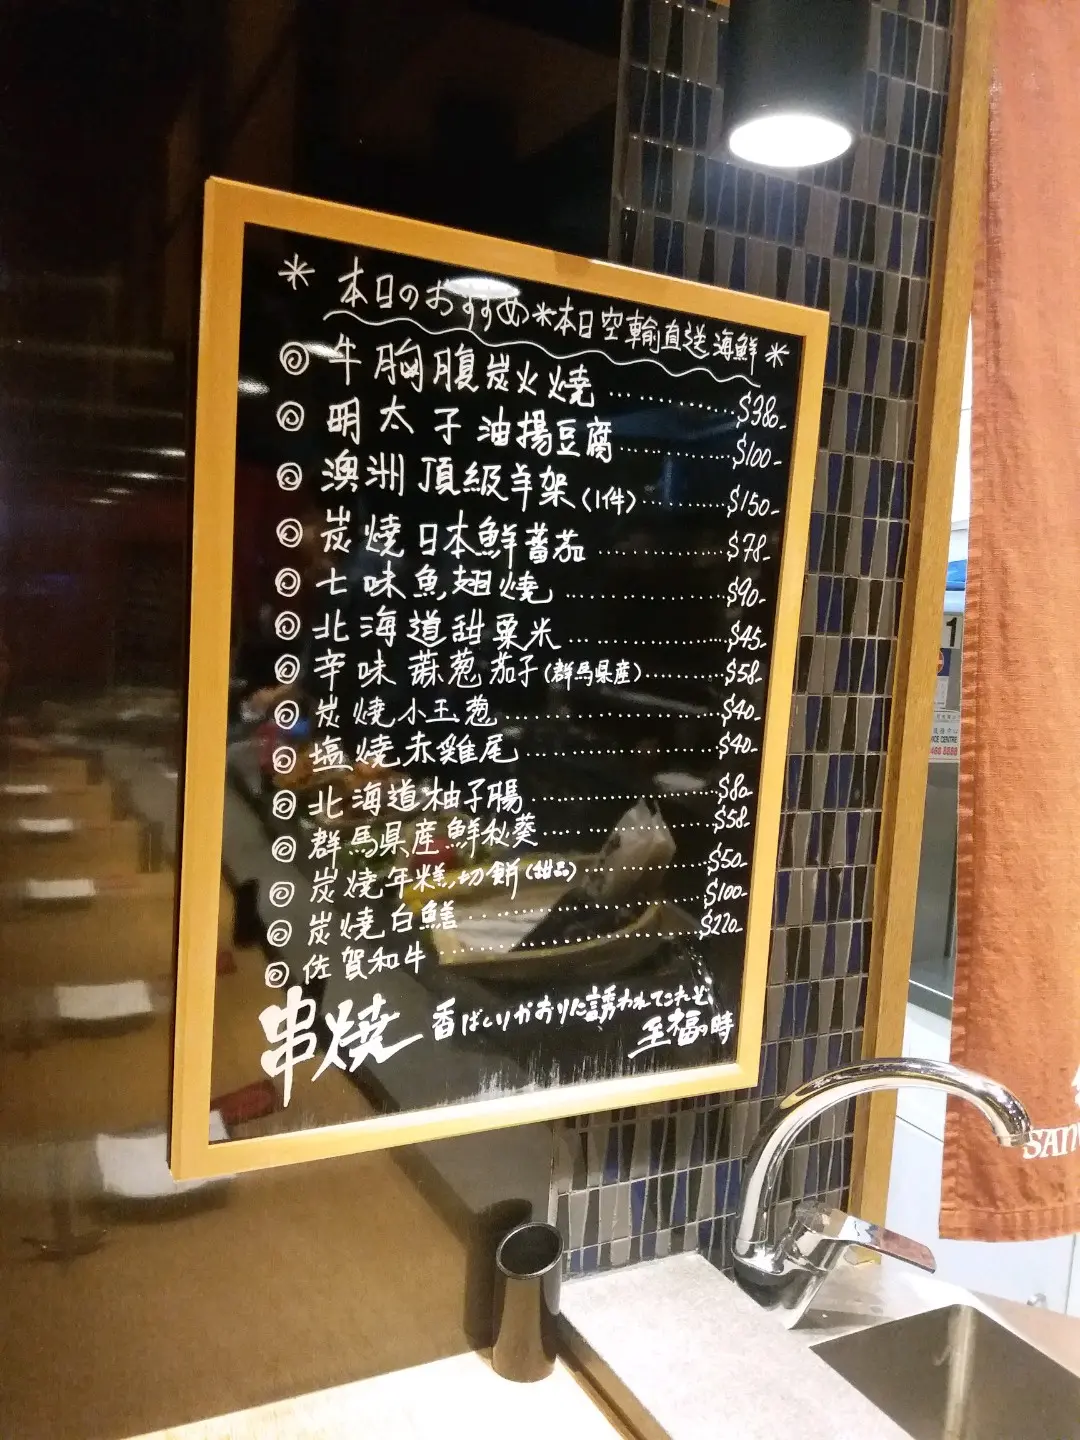 ＊本日のおすすめ＊本日空輸直送海鮮＊
◎牛胸腹炭火燒 ............ $380-
◎明太子油揚豆腐 ............ $100-
◎澳洲頂級羊架(1件) ............ $150-
◎炭燒日本鮮蕃茄 ............ $78-
◎七味魚翅燒 ............ $90-
◎北海道甜粟米 ............ $45-
◎辛味蔴葱茄子(群馬県産) ............ $58-
◎炭燒小玉葱 ............ $40-
◎塩燒赤雞尾 ............ $40-
◎北海道柚子腸 ............ $80-
◎群馬県産鮮秋葵 ............ $58-
◎炭燒年糕切餅(甜品) ............ $50-
◎炭燒白鱔 ............ $100-
◎佐賀和牛 ............ $220-
串燒 香ばしいかおりに誘われてこれぞ
至福の時
SAN
1
NCE CENTRE